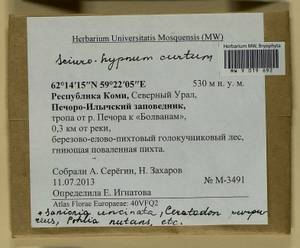 Herbarium Universitatis Mosquensis (MW)
Herbarium MW, Bryophyta
MW 9 019 692
Sciuro-hypnum curtum
62°14'15"N 59°22'05"E 530 м н. у. м.
Республика Коми, Северный Урал,
Печоро-Илычский заповедник,
тропа от р. Печора к «Болванам»,
0,3 км от реки,
березово-елово-пихтовый голокучниковый лес,
гниющая поваленная пихта.
Собрали А. Серёгин, Н. Захаров
11.07.2013 № М-3491
Определила Е. Игнатова
Atlas Florae Europaeae: 40VFQ2
+ Sanionia uncinata, Ceratodon purpu-
reus, Pohlia nutans, etc.